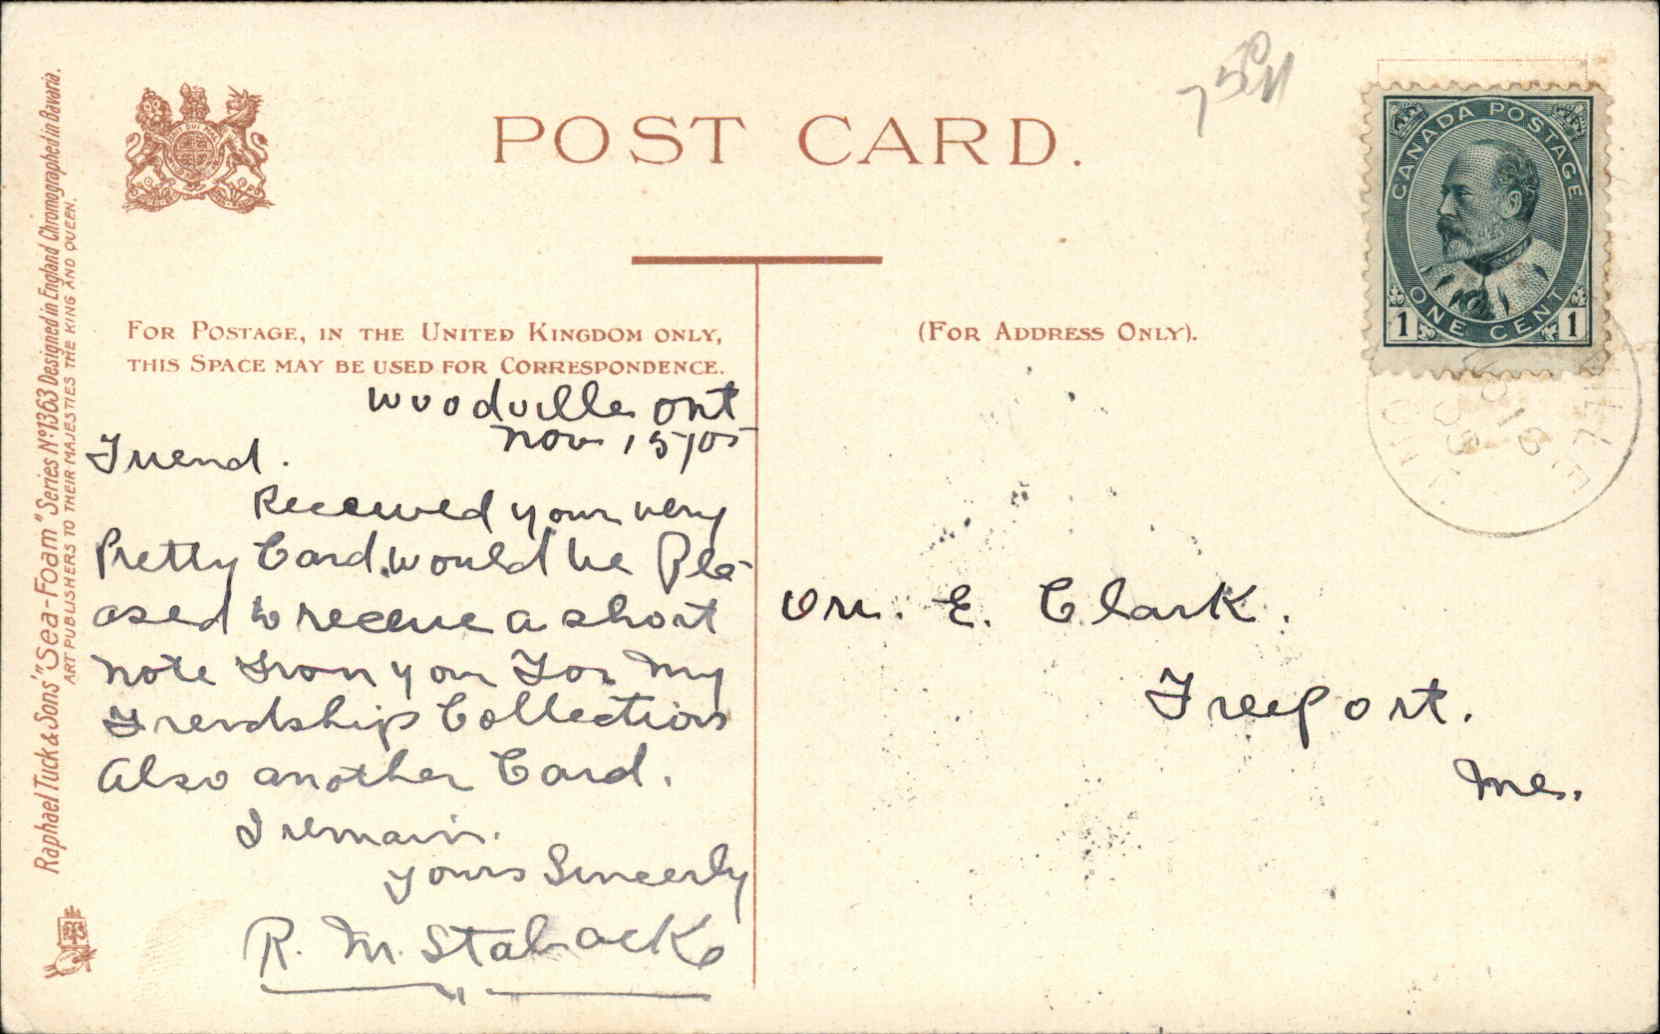 POST CARD.
FOR POSTAGE, IN THE UNITED KINGDOM ONLY,
THIS SPACE MAY BE USED FOR CORRESPONDENCE.
(FOR ADDRESS ONLY).
CANADA POSTAGE
ONE CENT
1 1
Raphael Tuck & Sons' "Sea-Foam" Series Nº 1363 Designed in England Chromographed in Bavaria.
ART PUBLISHERS TO THEIR MAJESTIES THE KING AND QUEEN.
Woodville Ont
Nov 15/05
Friend.
Received your very
Pretty Card. would be Plea-
ased to receive a short
note from you For My
Friendship Collection
Also another Card.
I remain.
yours Sincerly
R. M. Staback
E. Clark.
Freeport.
Me.